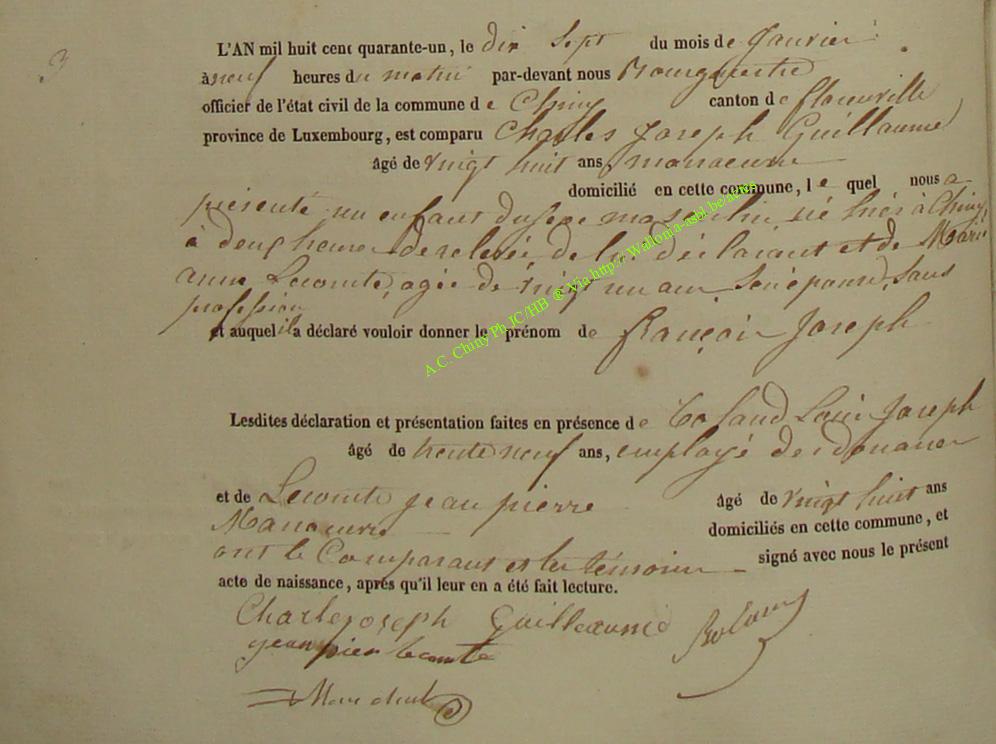 3
L'AN mil huit cent quarante-un, le dix Sept du mois de Janvier
à neuf heures du matin par-devant nous Bourgmestre
officier de l'état civil de la commune de Chiny canton de florenville
province de Luxembourg, est comparu Charles Joseph Guillaume
âgé de vingt huit ans, manoeuvre
domicilié en cette commune, le quel nous a
présenté un enfant du sexe masculin né hier à Chiny
à deux heures de relevée de lui déclarant et de Marie
anne Lecomte, agée de vingt un ans, Son épouse, Sans
profession
et auquel il a déclaré vouloir donner le prénom de françois Joseph
Lesdites déclaration et présentation faites en présence de Louis Joseph
âgé de trente neuf ans, employé des douanes
et de Lecomte jean pierre âgé de vingt huit ans
Manoeuvre domiciliés en cette commune, et
ont le Comparant et les témoins signé avec nous le présent
acte de naissance, après qu'il leur en a été fait lecture.
Charle joseph Guilleaume
jean pier lecomte
A.C. Chiny Ph JC/HB @ Via http://Wallonia-asbl.be/actes